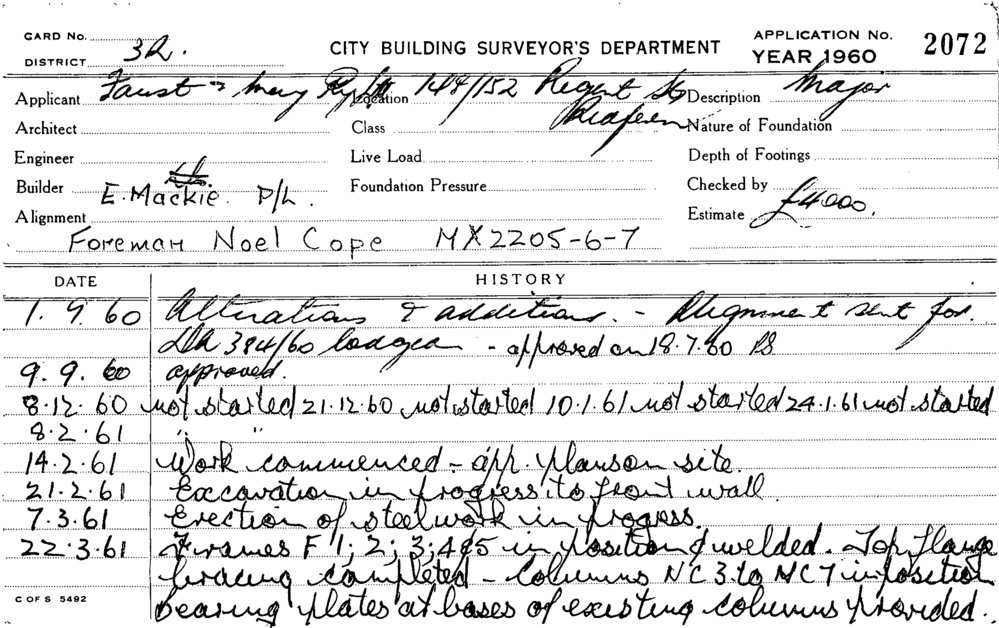 CARD No.
CITY BUILDING SURVEYOR'S DEPARTMENT
APPLICATION No. 2072
DISTRICT 3R.
YEAR 1960
Applicant Faust & Mary P/L Location 144/152 Regent St Description Major
Redfern
Architect Class Nature of Foundation
Engineer Live Load Depth of Footings
Builder E. Mackie. P/L. Foundation Pressure Checked by
Alignment Estimate £4000.
Foreman Noel Cope MX2205-6-7
DATE HISTORY
1.9.60 Alterations & additions. - Alignment sent for.
DA 384/60 lodged - approved on 18.7.60 PS
9.9.60 approved.
8.12.60 not started 21.12.60 not started 10.1.61 not started 24.1.61 not started
8.2.61 " "
14.2.61 Work commenced - app. plans on site.
21.2.61 Excavation in progress to front wall
7.3.61 Erection of steelwork in progress.
22.3.61 Frames F 1; 2; 3; 4 & 5 in position & welded. Top flange
bracing completed - Columns NC3 to NC7 in position
bearing plates at bases of existing columns provided.
C OF S 5492